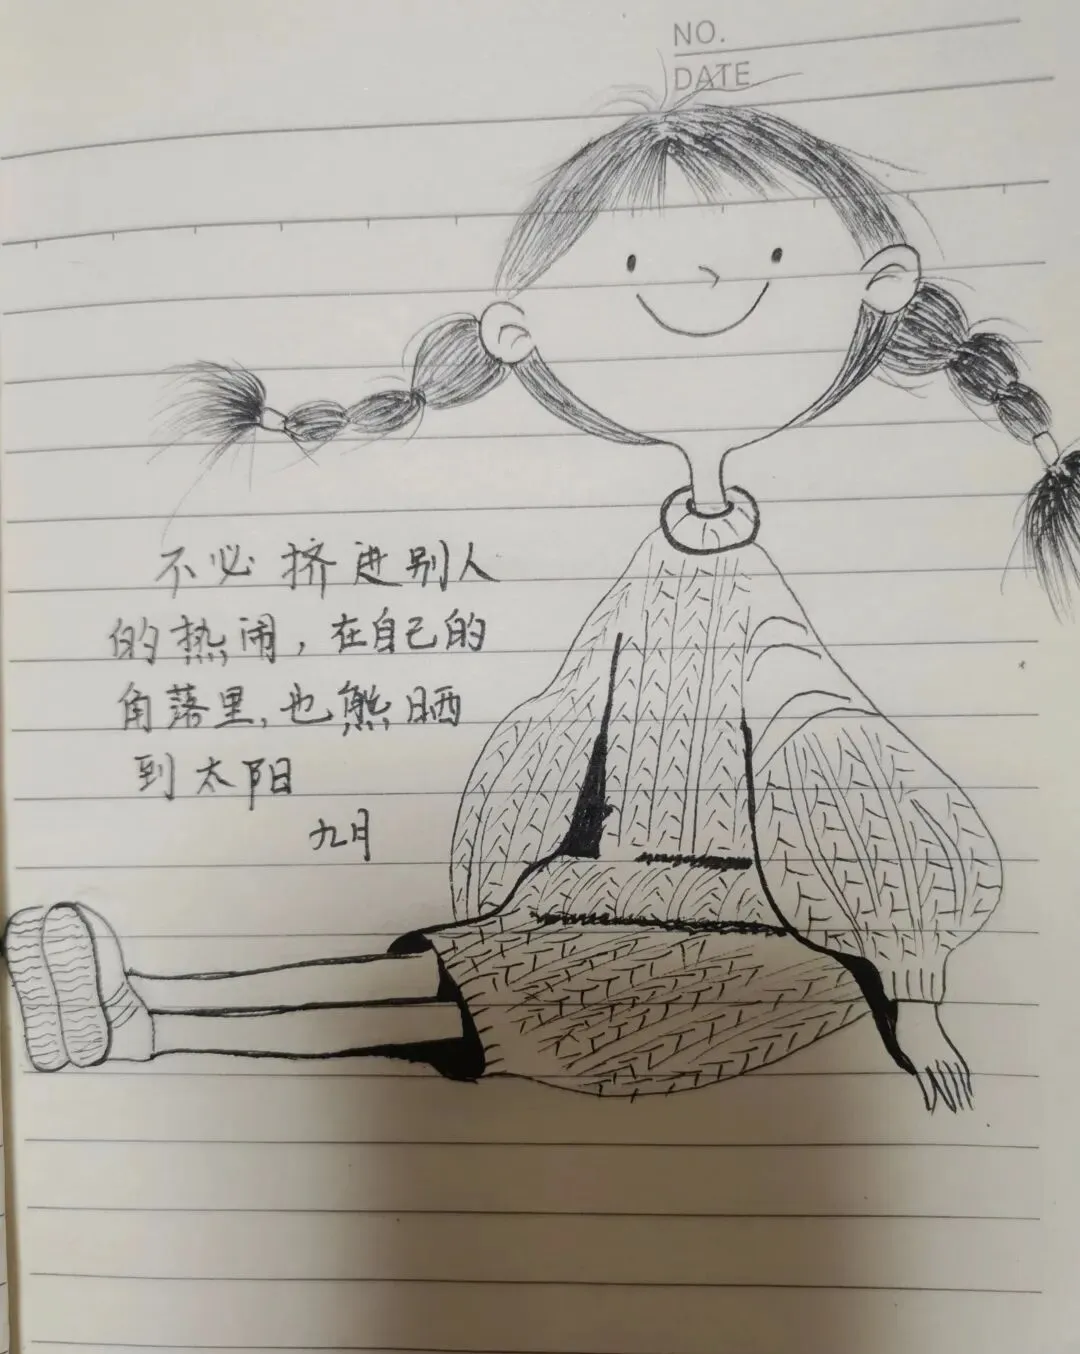 NO.
DATE
不必挤进别人
的热闹，在自己的
角落里，也熊晒
到太阳
九月